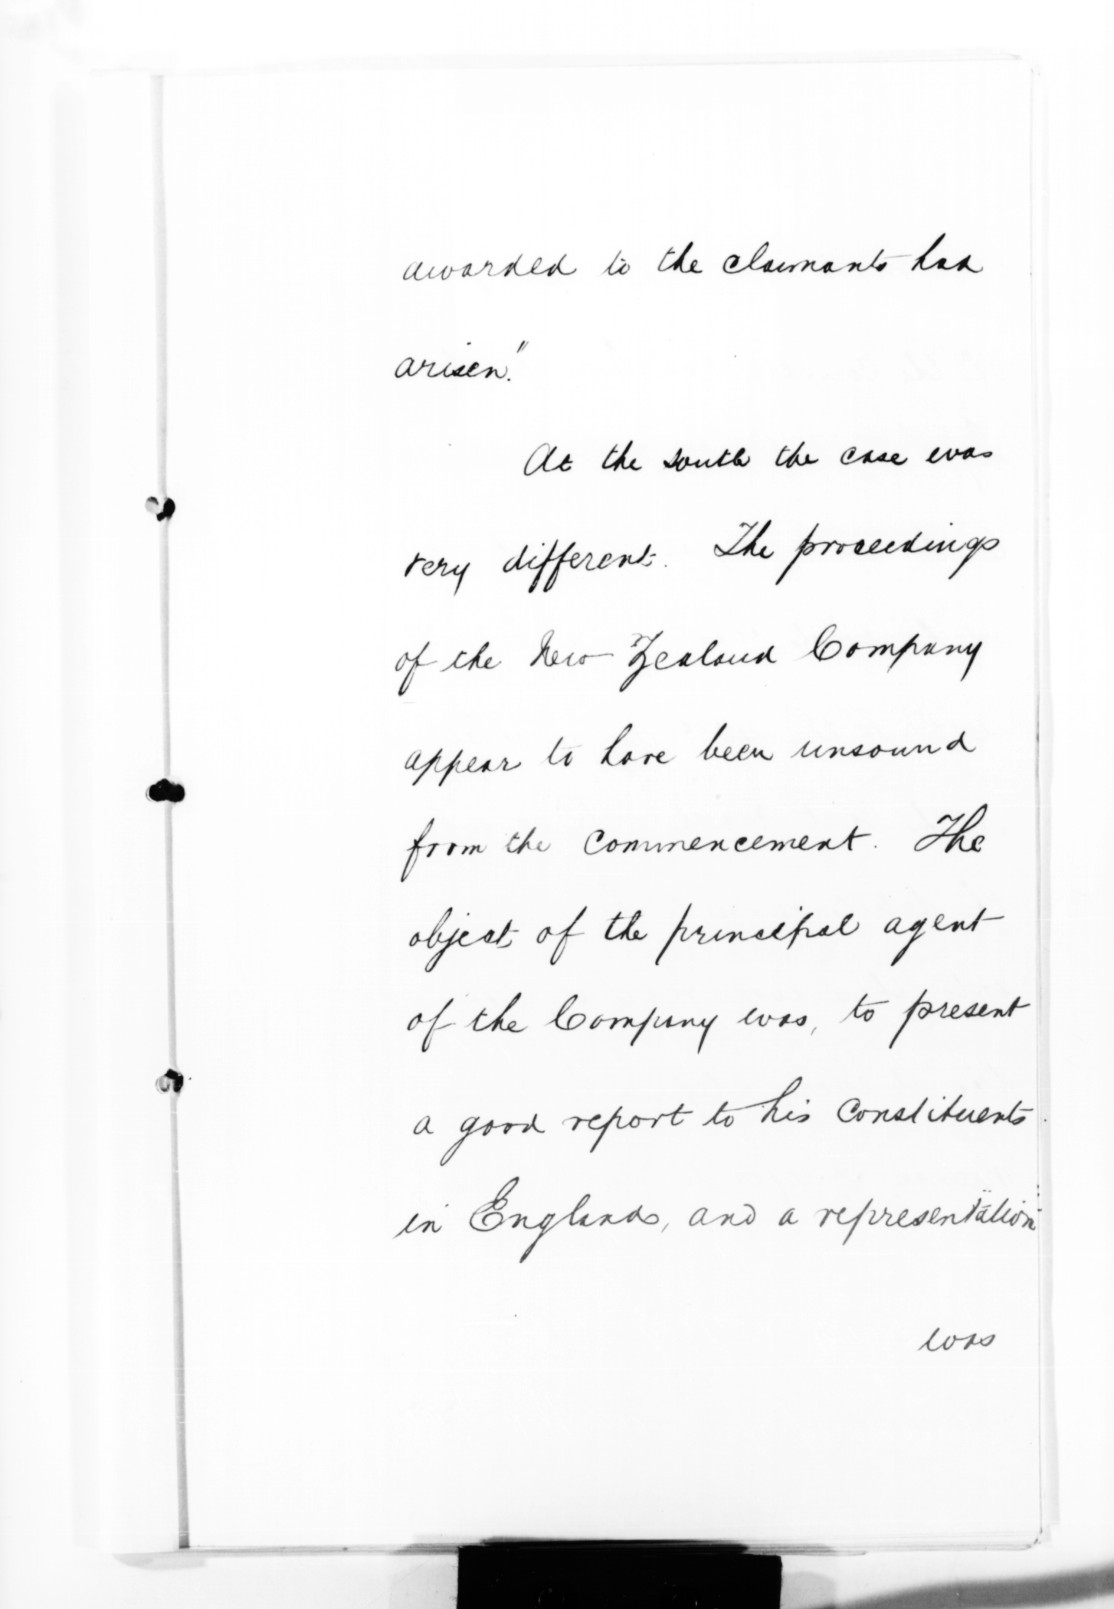 awarded to the claimants had
arisen."
At the south the case was
very different. The proceedings
of the New Zealand Company
appear to have been unsound
from the commencement. The
object of the principal agent
of the Company was, to present
a good report to his constituents
in England, and a representation
was